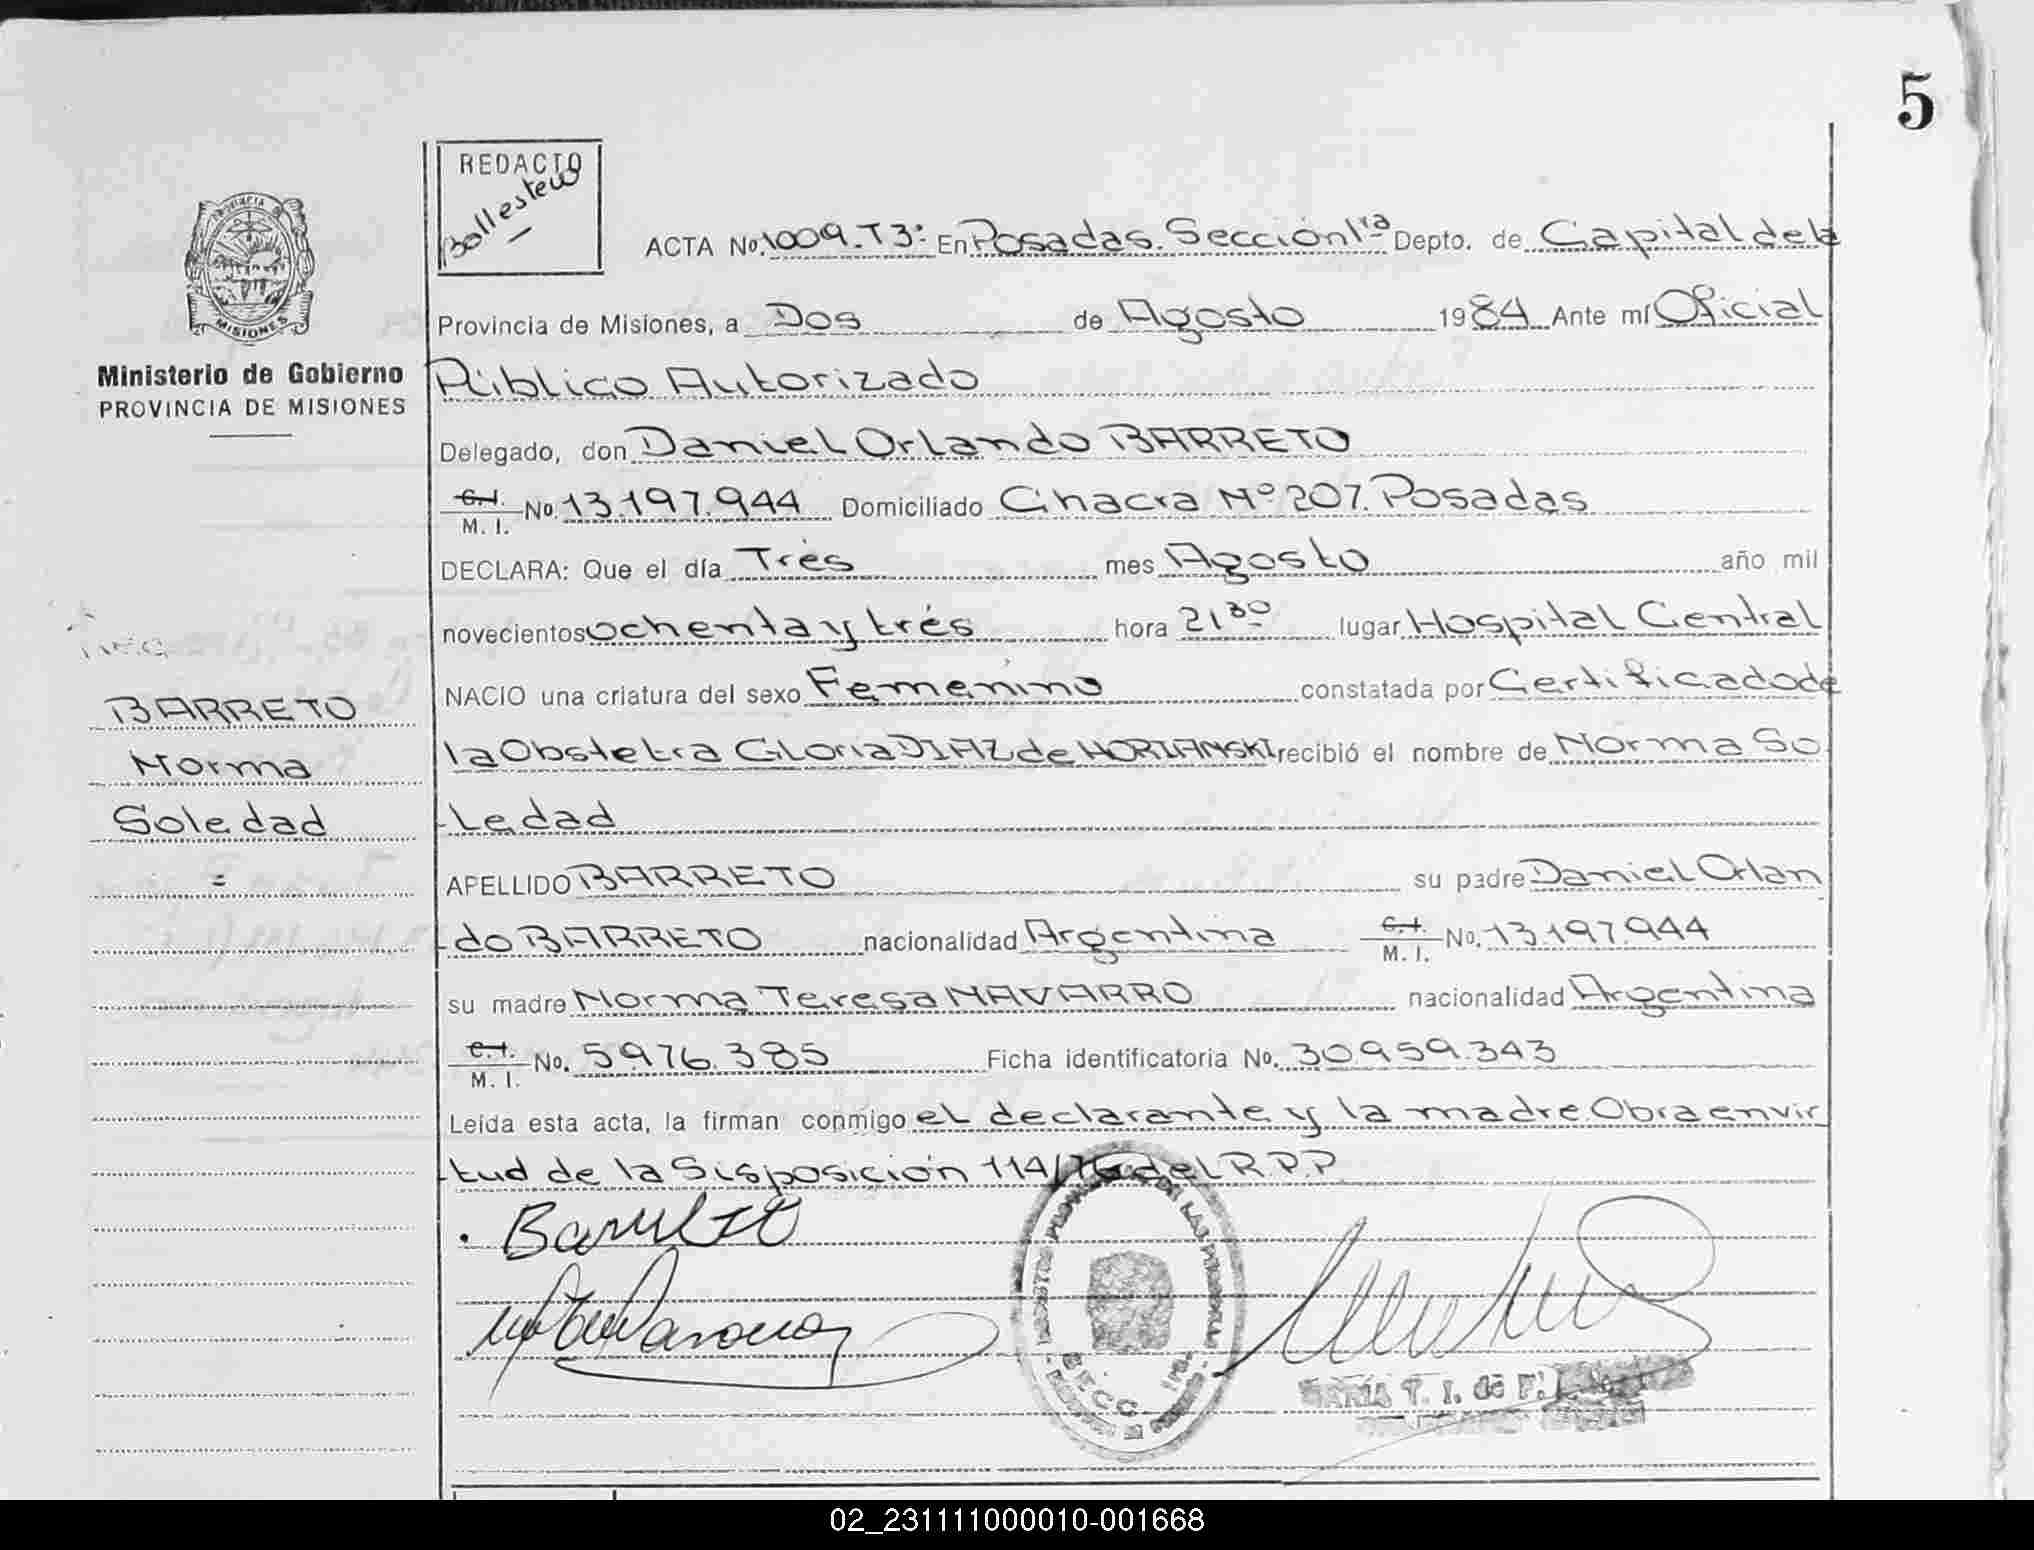 5
REDACTO
Ballesteros
PROVINCIA DE
MISIONES
Ministerio de Gobierno
PROVINCIA DE MISIONES
ACTA No. 1009.T3º En Posadas. Sección 1ra Depto. de Capital de la
Provincia de Misiones, a Dos de Agosto 1984 Ante mí Oficial
Público Autorizado
Delegado, don Daniel Orlando BARRETO
C.I.
M. I. No. 13.197.944 Domiciliado Chacra Nº 207. Posadas
DECLARA: Que el día Trés mes Agosto año mil
novecientos ochenta y trés hora 21 30 lugar Hospital Central
NACIO una criatura del sexo Femenino constatada por Certificado de
la Obstetra Gloria DIAZ de HORIANSKI recibió el nombre de Norma So
ledad
APELLIDO BARRETO su padre Daniel Orlan
do BARRETO nacionalidad Argentina C.I.
M. I. No. 13.197.944
su madre Norma Teresa NAVARRO nacionalidad Argentina
C.I.
M. I. No. 5.976.385 Ficha identificatoria No. 30.959.343
Leída esta acta, la firman conmigo el declarante y la madre. Obra en vir
tud de la Sisposición 114/76 del R.P.P
BARRETO
Norma
Soledad
=
Barreto
SECC. 1ra
MARIA T. I. de F.
02_231111000010-001668